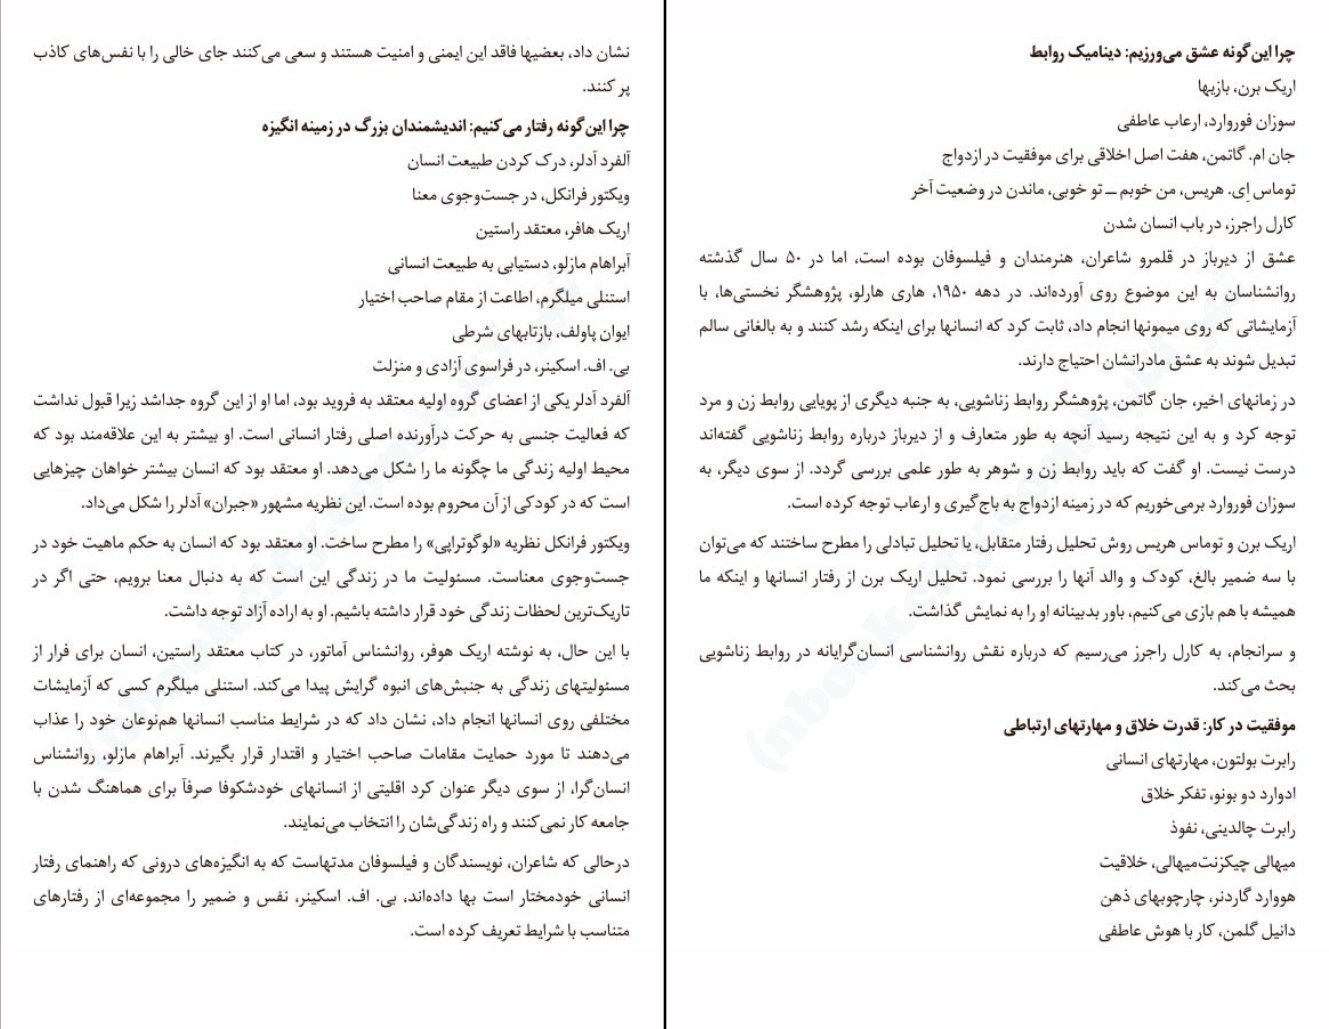 نشان داد، بعضیها فاقد این ایمنی و امنیت هستند و سعی می‌کنند جای خالی را با نفس‌های کاذب
پر کنند.
چرا این‌گونه رفتار می‌کنیم: اندیشمندان بزرگ در زمینه انگیزه
آلفرد آدلر، درک کردن طبیعت انسان
ویکتور فرانکل، در جست‌وجوی معنا
اریک هافر، معتقد راستین
آبراهام مازلو، دستیابی به طبیعت انسانی
استنلی میلگرم، اطاعت از مقام صاحب اختیار
ایوان پاولف، بازتابهای شرطی
بی. اف. اسکینر، در فراسوی آزادی و منزلت
آلفرد آدلر یکی از اعضای گروه اولیه معتقد به فروید بود، اما او از این گروه جداشد زیرا قبول نداشت
که فعالیت جنسی به حرکت درآورنده اصلی رفتار انسانی است. او بیشتر به این علاقه‌مند بود که
محیط اولیه زندگی ما چگونه ما را شکل می‌دهد. او معتقد بود که انسان بیشتر خواهان چیزهایی
است که در کودکی از آن محروم بوده است. این نظریه مشهور «جبران» آدلر را شکل می‌داد.
ویکتور فرانکل نظریه «لوگوتراپی» را مطرح ساخت. او معتقد بود که انسان به حکم ماهیت خود در
جست‌وجوی معناست. مسئولیت ما در زندگی این است که به دنبال معنا برویم، حتی اگر در
تاریک‌ترین لحظات زندگی خود قرار داشته باشیم. او به اراده آزاد توجه داشت.
با این حال، به نوشته اریک هوفر، روانشناس آماتور، در کتاب معتقد راستین، انسان برای فرار از
مسئولیتهای زندگی به جنبش‌های انبوه گرایش پیدا می‌کند. استنلی میلگرم کسی که آزمایشات
مختلفی روی انسانها انجام داد، نشان داد که در شرایط مناسب انسانها هم‌نوعان خود را عذاب
می‌دهند تا مورد حمایت مقامات صاحب اختیار و اقتدار قرار بگیرند. آبراهام مازلو، روانشناس
انسان‌گرا، از سوی دیگر عنوان کرد اقلیتی از انسانهای خودشکوفا صرفآ برای هماهنگ شدن با
جامعه کار نمی‌کنند و راه زندگی‌شان را انتخاب می‌نمایند.
درحالی که شاعران، نویسندگان و فیلسوفان مدتهاست که به انگیزه‌های درونی که راهنمای رفتار
انسانی خودمختار است بها داده‌اند، بی. اف. اسکینر، نفس و ضمیر را مجموعه‌ای از رفتارهای
متناسب با شرایط تعریف کرده است.
چرا این‌گونه عشق می‌ورزیم: دینامیک روابط
اریک برن، بازیها
سوزان فوروارد، ارعاب عاطفی
جان ام. گاتمن، هفت اصل اخلاقی برای موفقیت در ازدواج
توماس اِی. هریس، من خوبم ــ تو خوبی، ماندن در وضعیت آخر
کارل راجرز، در باب انسان شدن
عشق از دیرباز در قلمرو شاعران، هنرمندان و فیلسوفان بوده است، اما در ۵۰ سال گذشته
روانشناسان به این موضوع روی آورده‌اند. در دهه ۱۹۵۰، هاری هارلو، پژوهشگر نخستی‌ها، با
آزمایشاتی که روی میمونها انجام داد، ثابت کرد که انسانها برای اینکه رشد کنند و به بالغانی سالم
تبدیل شوند به عشق مادرانشان احتیاج دارند.
در زمانهای اخیر، جان گاتمن، پژوهشگر روابط زناشویی، به جنبه دیگری از پویایی روابط زن و مرد
توجه کرد و به این نتیجه رسید آنچه به طور متعارف و از دیرباز درباره روابط زناشویی گفته‌اند
درست نیست. او گفت که باید روابط زن و شوهر به طور علمی بررسی گردد. از سوی دیگر، به
سوزان فوروارد برمی‌خوریم که در زمینه ازدواج به باج‌گیری و ارعاب توجه کرده است.
اریک برن و توماس هریس روش تحلیل رفتار متقابل، یا تحلیل تبادلی را مطرح ساختند که می‌توان
با سه ضمیر بالغ، کودک و والد آنها را بررسی نمود. تحلیل اریک برن از رفتار انسانها و اینکه ما
همیشه با هم بازی می‌کنیم، باور بدبینانه او را به نمایش گذاشت.
و سرانجام، به کارل راجرز می‌رسیم که درباره نقش روانشناسی انسان‌گرایانه در روابط زناشویی
بحث می‌کند.
موفقیت در کار: قدرت خلاق و مهارتهای ارتباطی
رابرت بولتون، مهارتهای انسانی
ادوارد دو بونو، تفکر خلاق
رابرت چالدینی، نفوذ
میهالی چیکزنت‌میهالی، خلاقیت
هووارد گاردنر، چارچوبهای ذهن
دانیل گلمن، کار با هوش عاطفی